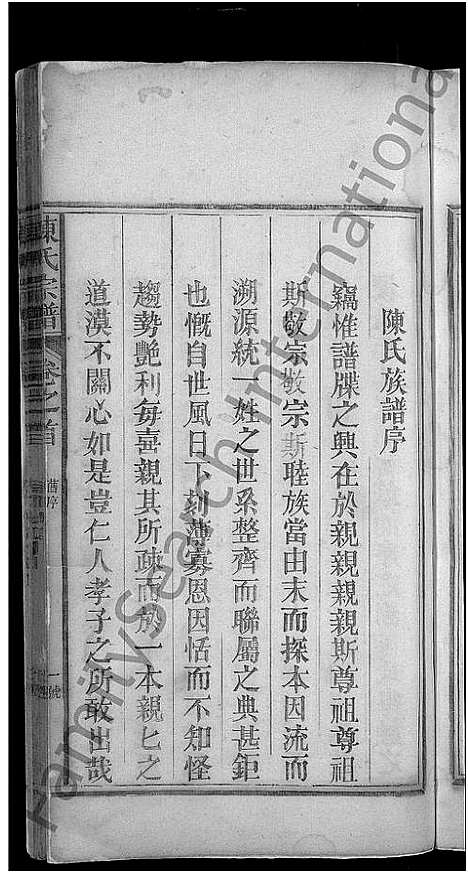 陳氏族譜序
竊惟譜牒之興在於親親親親斯尊祖尊祖
斯敬宗敬宗斯睦族當由末而探本因流而
溯源統一姓之世系整齊而聯屬之典甚鉅
也慨自世風日下刻薄寡恩因恬而不知怪
趨勢艶利每喜親其所疎而於一本親匕之
道漠不關心如是豈仁人孝子之所敢出哉
陳氏宗譜
卷之首
舊序
一號
FamilySearch International